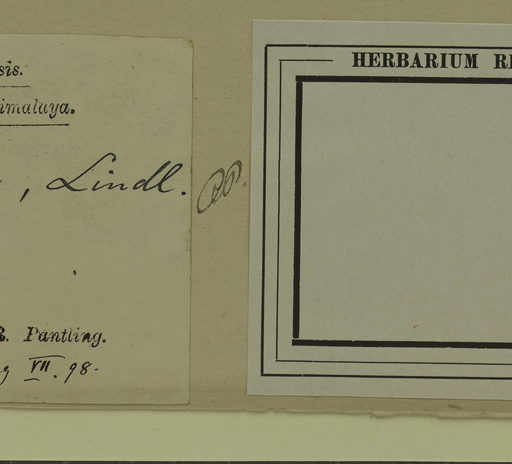 sis.
imalaya.
, Lindl.
R. Pantling.
VII. 98.
HERBARIUM RE